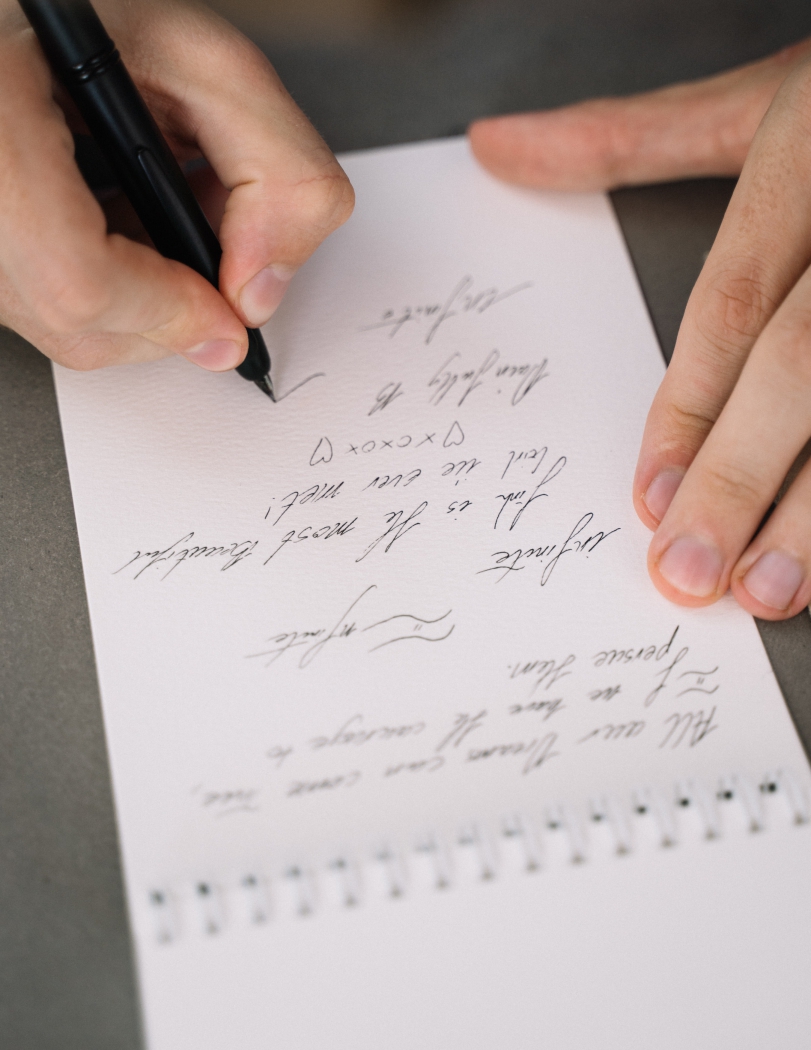 All our Dreams can come True,
If we have the courage to
persue them.
Infinite
infinite
Tink is the most Beautiful
Girl we ever met!
♡xoxox♡
Painfully B
Infinite